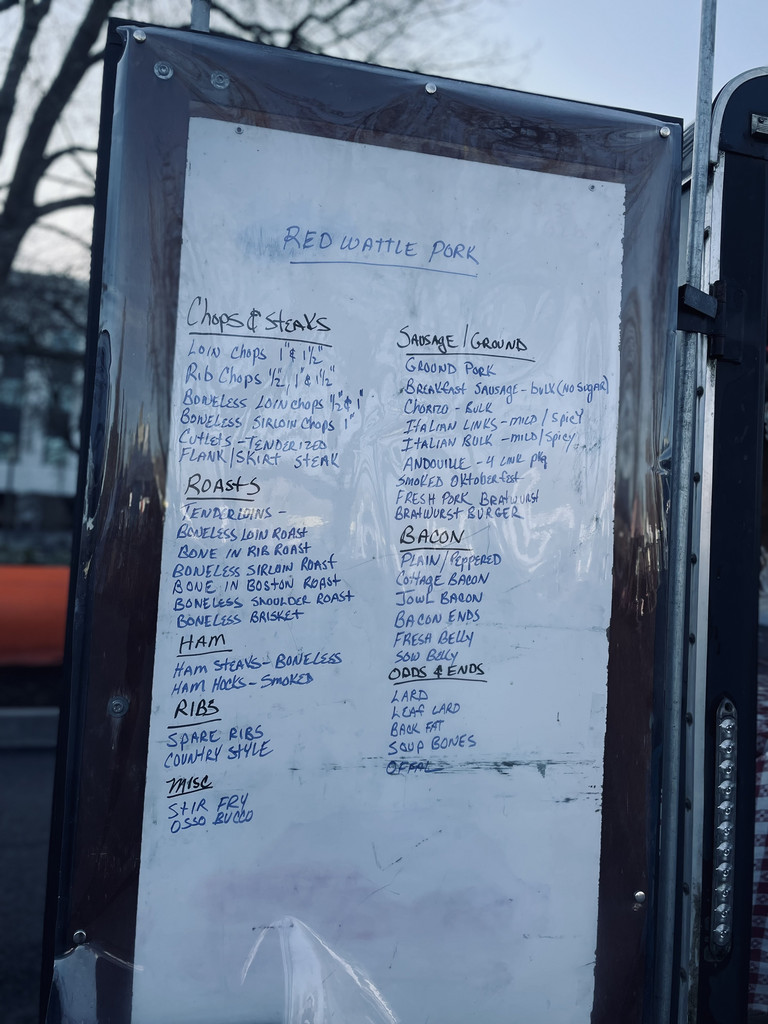 RED WATTLE PORK
Chops & STEAKS
LOIN Chops 1" & 1½"
Rib Chops ½", 1" & 1½"
BONELESS LOIN chops ½" & 1"
BONELESS SIRLOIN Chops 1"
CUTLETS - TENDERIZED
FLANK/SKIRT STEAK
ROASTS
TENDERLOINS -
BONELESS LOIN ROAST
BONE IN RIB ROAST
BONELESS SIRLOIN ROAST
BONE IN BOSTON ROAST
BONELESS SHOULDER ROAST
BONELESS BRISKET
HAM
HAM STEAKS - BONELESS
HAM HOCKS - SMOKED
RIBS
SPARE RIBS
COUNTRY STYLE
MISC
STIR FRY
OSSO BUCCO
SAUSAGE/GROUND
GROUND PORK
BREAKFAST SAUSAGE - bulk (NO SUGAR)
CHORIZO - BULK
ITALIAN LINKS - MILD/SPICY
ITALIAN BULK - MILD/SPICY
ANDOUILLE - 4 LINK pkg
SMOKED OKtoberfest
FRESH PORK BRATWURST
BRATWURST BURGER
BACON
PLAIN/PEPPERED
COTTAGE BACON
JOWL BACON
BACON ENDS
FRESH BELLY
SOW BELLY
ODDS & ENDS
LARD
LEAF LARD
BACK FAT
SOUP BONES
OFFAL